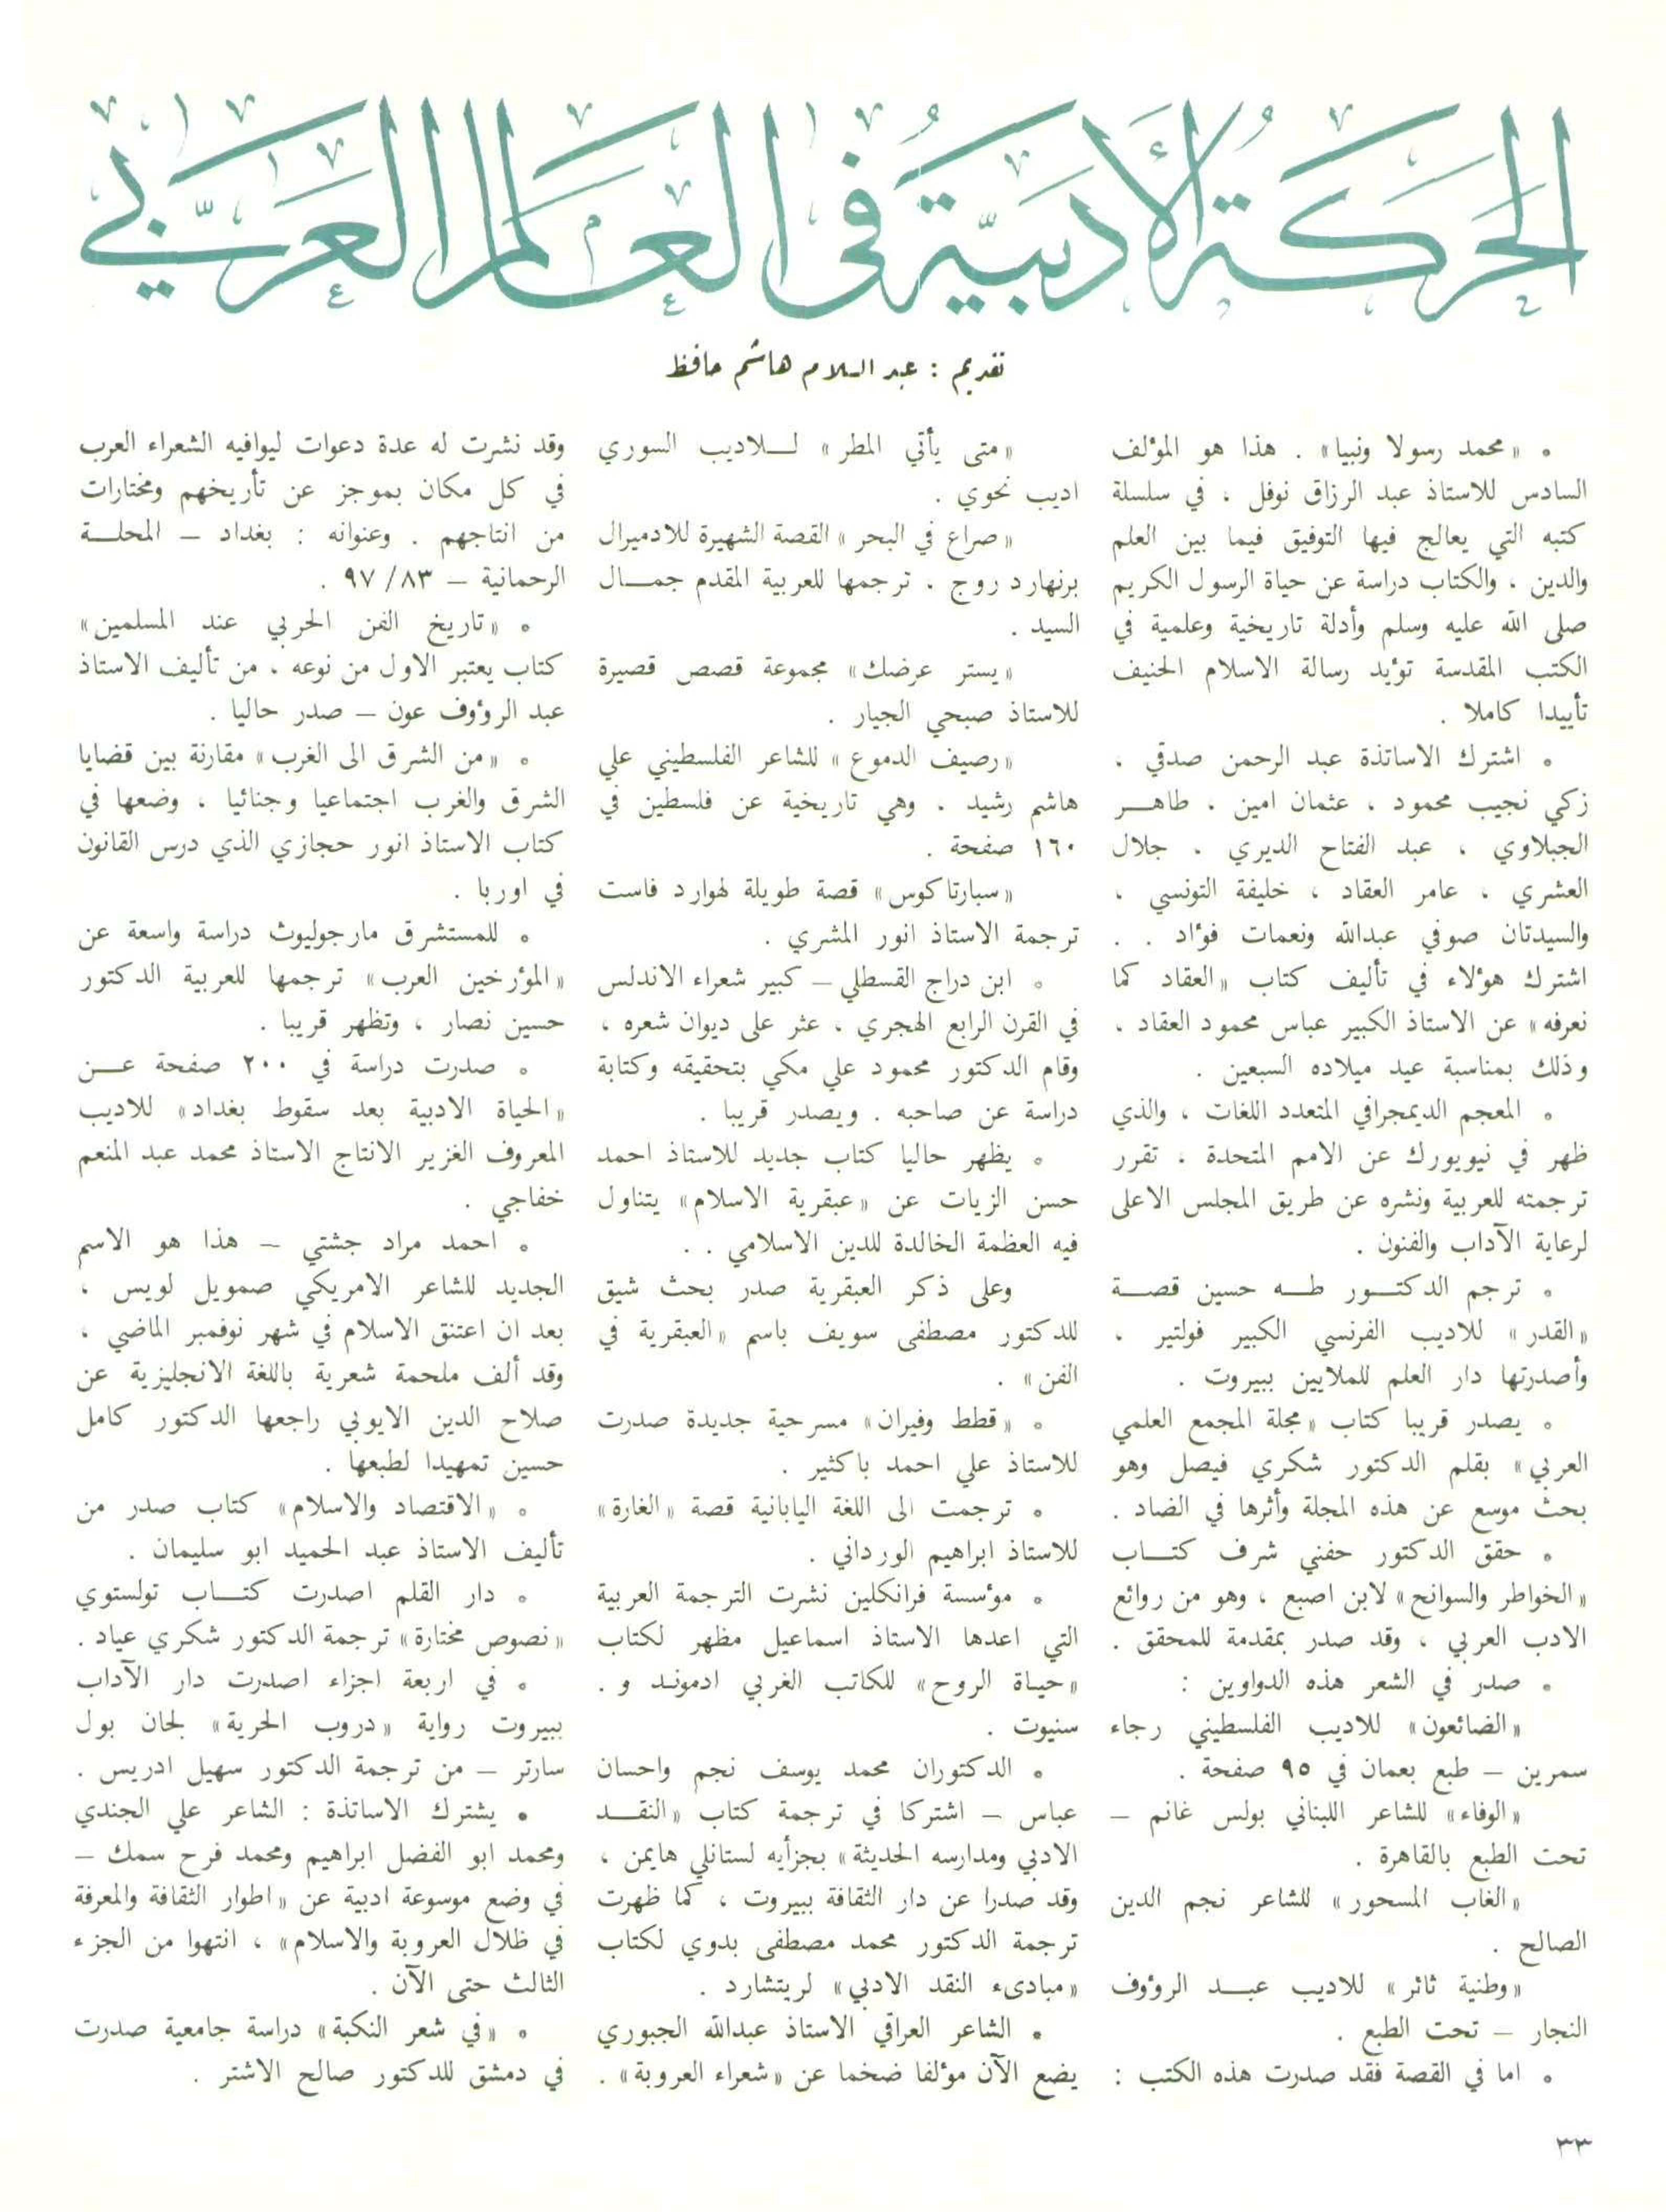 الحركة الأدبية في العالم العربي
تقديم : عبد السلام هاشم حافظ
• «محمد رسولا ونبيا» . هذا هو المؤلف
السادس للاستاذ عبد الرزاق نوفل ، في سلسلة
كتبه التي يعالج فيها التوفيق فيما بين العلم
والدين ، والكتاب دراسة عن حياة الرسول الكريم
صلى الله عليه وسلم وأدلة تاريخية وعلمية في
الكتب المقدسة تؤيد رسالة الاسلام الحنيف
تأييدا كاملا .
• اشترك الاساتذة عبد الرحمن صدقي ،
زكي نجيب محمود ، عثمان امين ، طاهر
الجبلاوي ، عبد الفتاح الديري ، جلال
العشري ، عامر العقاد ، خليفة التونسي ،
والسيدتان صوفي عبدالله ونعمات فؤاد . .
اشترك هؤلاء في تأليف كتاب «العقاد كما
نعرفه» عن الاستاذ الكبير عباس محمود العقاد ،
وذلك بمناسبة عيد ميلاده السبعين .
• المعجم الديمجرافي المتعدد اللغات ، والذي
ظهر في نيويورك عن الامم المتحدة ، تقرر
ترجمته للعربية ونشره عن طريق المجلس الاعلى
لرعاية الآداب والفنون .
• ترجم الدكتور طه حسين قصة
«القدر» للاديب الفرنسي الكبير فولتير ،
وأصدرتها دار العلم للملايين ببيروت .
• يصدر قريبا كتاب «مجلة المجمع العلمي
العربي» بقلم الدكتور شكري فيصل وهو
بحث موسع عن هذه المجلة وأثرها في الضاد .
• حقق الدكتور حفني شرف كتاب
«الخواطر والسوانح» لابن اصبع ، وهو من روائع
الادب العربي ، وقد صدر بمقدمة للمحقق .
• صدر في الشعر هذه الدواوين :
«الضائعون» للاديب الفلسطيني رجاء
سمرين – طبع بعمان في ٩٥ صفحة .
«الوفاء» للشاعر اللبناني بولس غانم –
تحت الطبع بالقاهرة .
«الغاب المسحور» للشاعر نجم الدين
الصالح .
«وطنية ثائر» للاديب عبد الرؤوف
النجار – تحت الطبع .
• اما في القصة فقد صدرت هذه الكتب :
«متى يأتي المطر» للاديب السوري
اديب نحوي .
«صراع في البحر» القصة الشهيرة للادميرال
برنهارد روج ، ترجمها للعربية المقدم جمال
السيد .
«يستر عرضك» مجموعة قصص قصيرة
للاستاذ صبحي الجيار .
«رصيف الدموع» للشاعر الفلسطيني علي
هاشم رشيد ، وهي تاريخية عن فلسطين في
١٦٠ صفحة .
«سبارتاكوس» قصة طويلة لهوارد فاست
ترجمة الاستاذ انور المشري .
• ابن دراج القسطلي – كبير شعراء الاندلس
في القرن الرابع الهجري ، عثر على ديوان شعره ،
وقام الدكتور محمود علي مكي بتحقيقه وكتابة
دراسة عن صاحبه . ويصدر قريبا .
• يظهر حاليا كتاب جديد للاستاذ احمد
حسن الزيات عن «عبقرية الاسلام» يتناول
فيه العظمة الخالدة للدين الاسلامي . .
وعلى ذكر العبقرية صدر بحث شيق
للدكتور مصطفى سويف باسم «العبقرية في
الفن» .
• «قطط وفيران» مسرحية جديدة صدرت
للاستاذ علي احمد باكثير .
• ترجمت الى اللغة اليابانية قصة «الغارة»
للاستاذ ابراهيم الورداني .
• مؤسسة فرانكلين نشرت الترجمة العربية
التي اعدها الاستاذ اسماعيل مظهر لكتاب
«حياة الروح» للكاتب الغربي ادموند و .
سنيوت .
• الدكتوران محمد يوسف نجم واحسان
عباس – اشتركا في ترجمة كتاب «النقد
الادبي ومدارسه الحديثة» بجزأيه لستانلي هايمن ،
وقد صدرا عن دار الثقافة ببيروت ، كما ظهرت
ترجمة الدكتور محمد مصطفى بدوي لكتاب
«مبادىء النقد الادبي» لريتشارد .
• الشاعر العراقي الاستاذ عبدالله الجبوري
يضع الآن مؤلفا ضخما عن «شعراء العروبة» .
وقد نشرت له عدة دعوات ليوافيه الشعراء العرب
في كل مكان بموجز عن تأريخهم ومختارات
من انتاجهم . وعنوانه : بغداد – المحلة
الرحمانية – ٩٧/٨٣ .
• «تاريخ الفن الحربي عند المسلمين»
كتاب يعتبر الاول من نوعه ، من تأليف الاستاذ
عبد الرؤوف عون – صدر حاليا .
• «من الشرق الى الغرب» مقارنة بين قضايا
الشرق والغرب اجتماعيا وجنائيا ، وضعها في
كتاب الاستاذ انور حجازي الذي درس القانون
في اوربا .
• للمستشرق مارجوليوث دراسة واسعة عن
«المؤرخين العرب» ترجمها للعربية الدكتور
حسين نصار ، وتظهر قريبا .
• صدرت دراسة في ٢٠٠ صفحة عن
«الحياة الادبية بعد سقوط بغداد» للاديب
المعروف الغزير الانتاج الاستاذ محمد عبد المنعم
خفاجي .
• احمد مراد جشتي – هذا هو الاسم
الجديد للشاعر الامريكي صمويل لويس ،
بعد ان اعتنق الاسلام في شهر نوفمبر الماضي ،
وقد ألف ملحمة شعرية باللغة الانجليزية عن
صلاح الدين الايوبي راجعها الدكتور كامل
حسين تمهيدا لطبعها .
• «الاقتصاد والاسلام» كتاب صدر من
تأليف الاستاذ عبد الحميد ابو سليمان .
• دار القلم اصدرت كتاب تولستوي
«نصوص مختارة» ترجمة الدكتور شكري عياد .
• في اربعة اجزاء اصدرت دار الآداب
ببيروت رواية «دروب الحرية» لجان بول
سارتر – من ترجمة الدكتور سهيل ادريس .
• يشترك الاساتذة : الشاعر علي الجندي
ومحمد ابو الفضل ابراهيم ومحمد فرح سمك –
في وضع موسوعة ادبية عن «اطوار الثقافة والمعرفة
في ظلال العروبة والاسلام» ، انتهوا من الجزء
الثالث حتى الآن .
• «في شعر النكبة» دراسة جامعية صدرت
في دمشق للدكتور صالح الاشتر .
٣٣